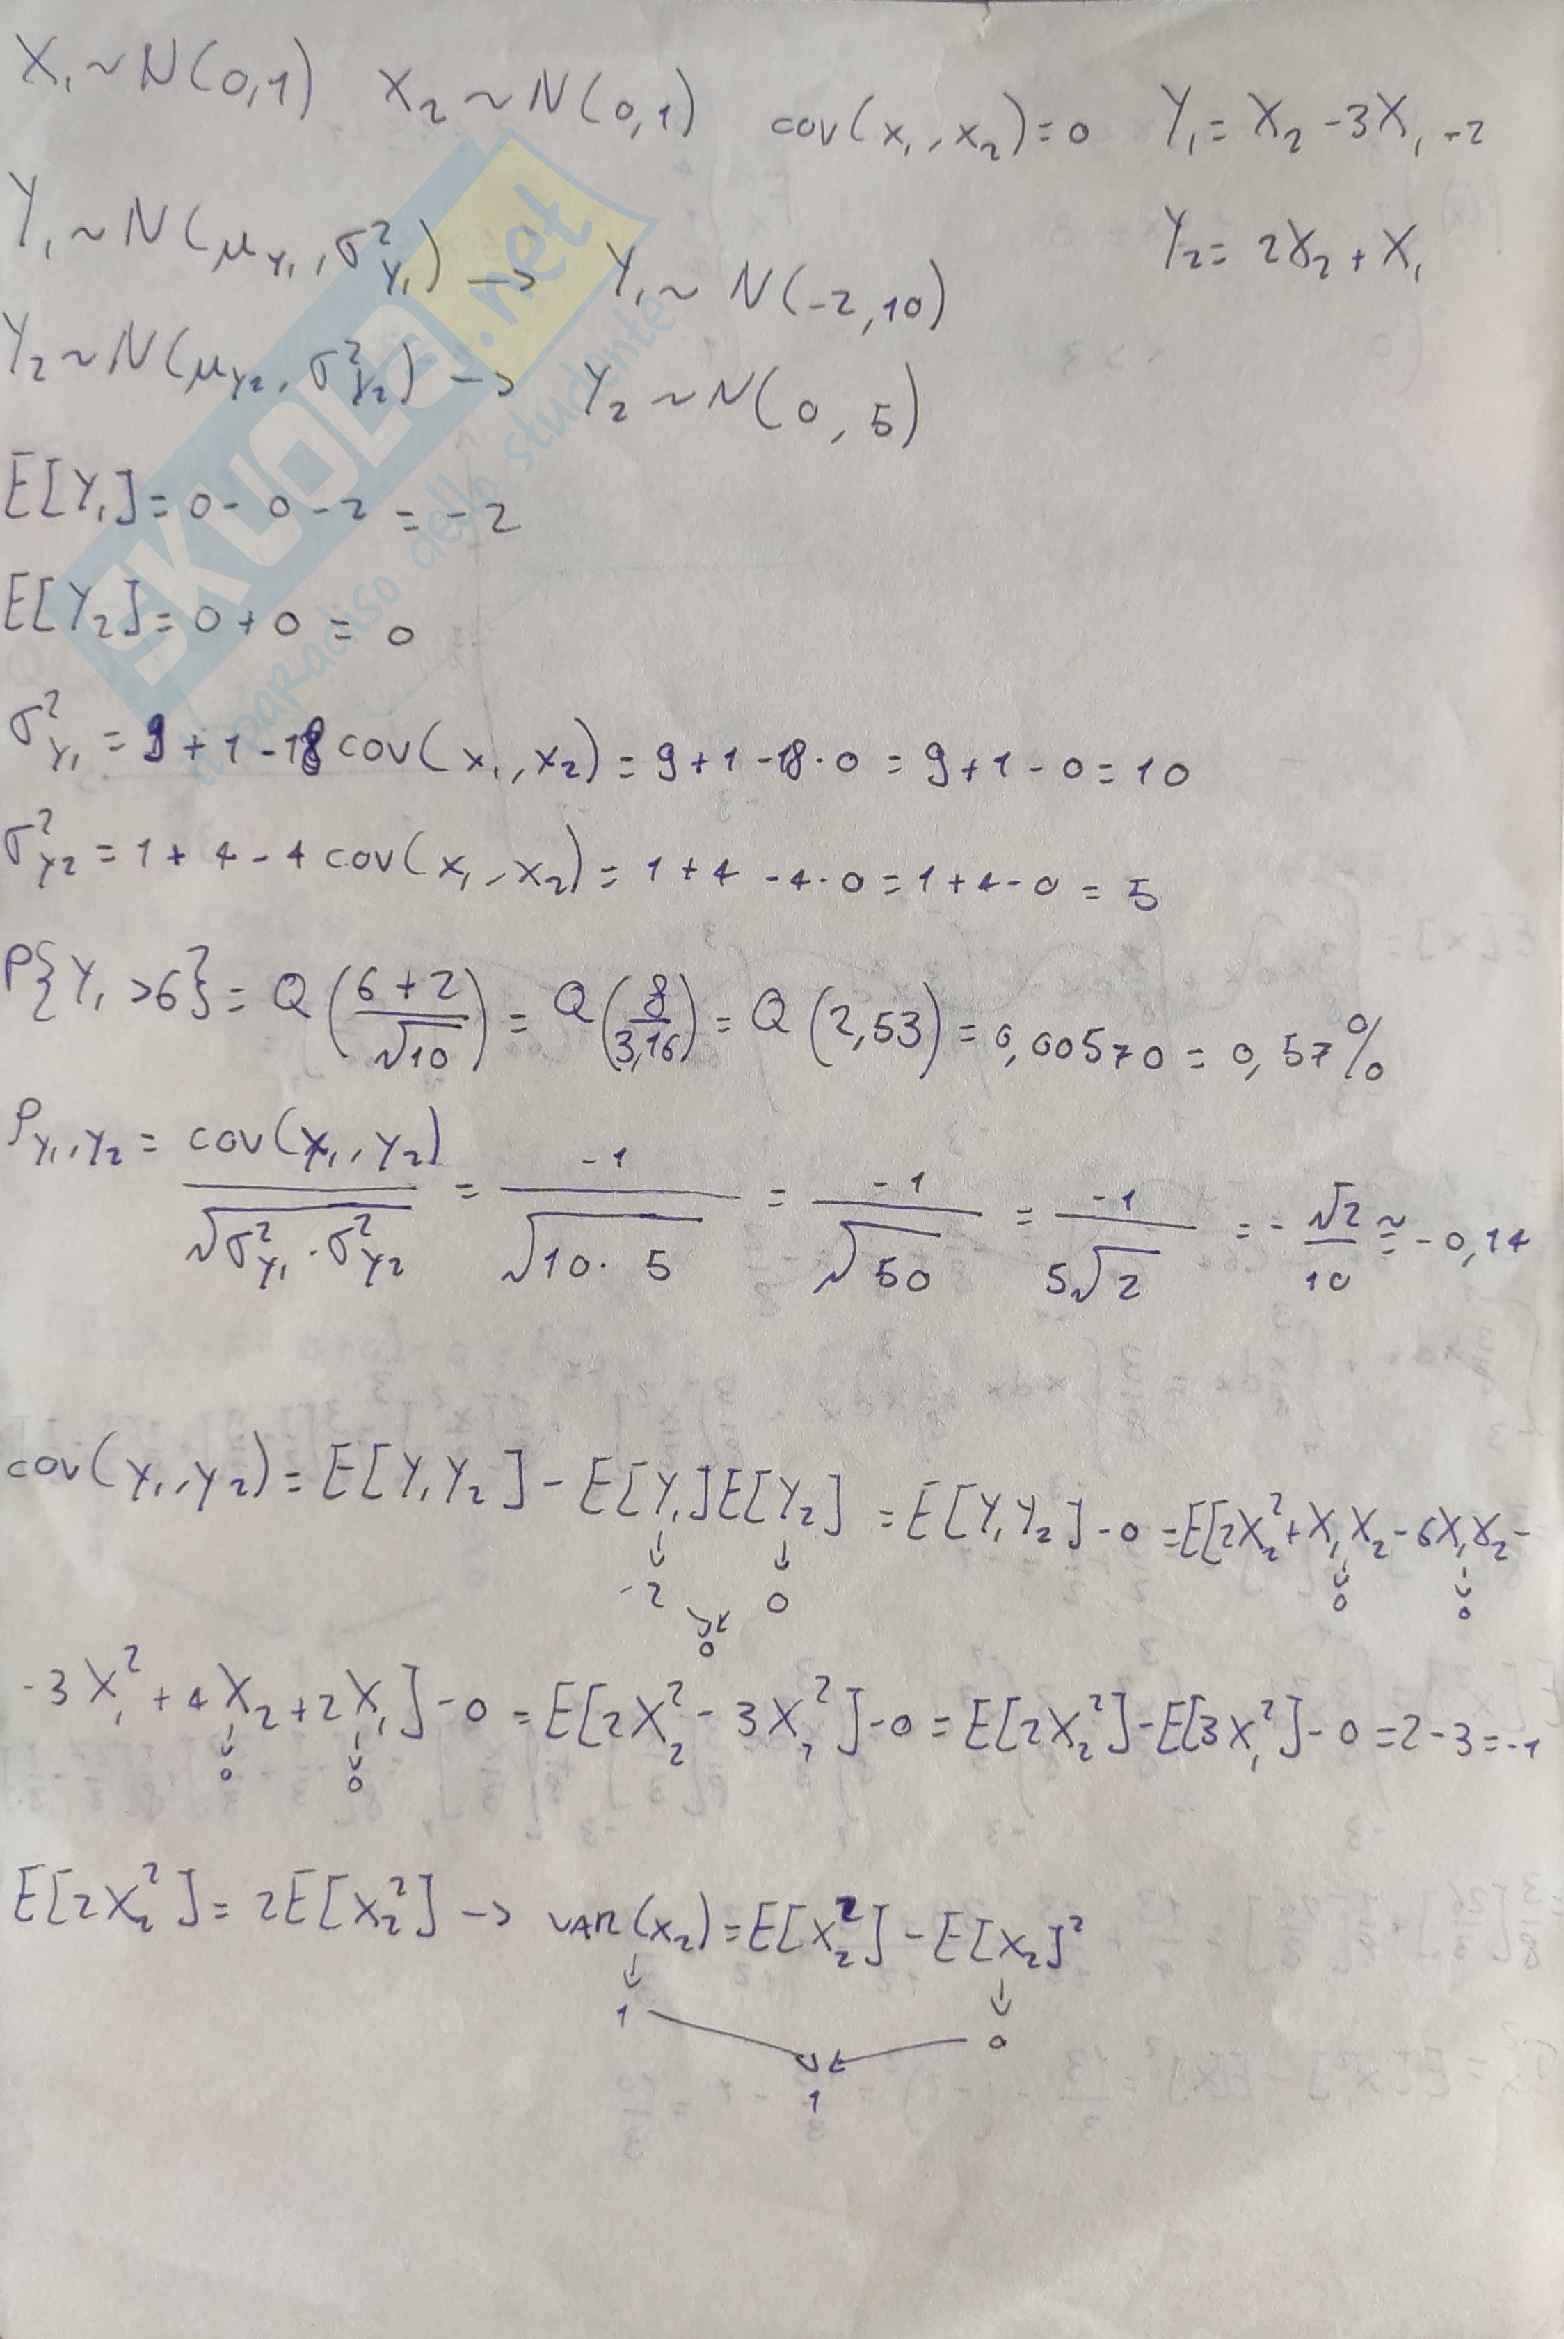 X₁ ~ N(0,1) X₂ ~ N(0,1) cov(x₁, x₂) = 0 Y₁ = X₂ - 3X₁ - 2
Y₁ ~ N(μ_Y₁, σ²_Y₁) → Y₁ ~ N(-2, 10) Y₂ = 2X₂ + X₁
Y₂ ~ N(μ_Y₂, σ²_Y₂) → Y₂ ~ N(0, 5)
E[Y₁] = 0 - 0 - 2 = -2
E[Y₂] = 0 + 0 = 0
σ²_Y₁ = 9 + 1 - 18 cov(x₁, x₂) = 9 + 1 - 18·0 = 9 + 1 - 0 = 10
σ²_Y₂ = 1 + 4 - 4 cov(x₁, x₂) = 1 + 4 - 4·0 = 1 + 4 - 0 = 5
P{Y₁ > 6} = Q((6+2)/√10) = Q(8/3,16) = Q(2,53) = 0,00570 = 0,57%
ρ_Y₁,Y₂ = cov(Y₁, Y₂)/√(σ²_Y₁ · σ²_Y₂) = -1/√(10·5) = -1/√50 = -1/(5√2) = -√2/10 ≅ -0,14
cov(Y₁, Y₂) = E[Y₁Y₂] - E[Y₁]E[Y₂] = E[Y₁Y₂] - 0 = E[2X₂² + X₁X₂ - 6X₁X₂ -
↓ ↓ ↓ ↓
-2 0 0 0
0
-3X₁² + 4X₂ + 2X₁] - 0 = E[2X₂² - 3X₁²] - 0 = E[2X₂²] - E[3X₁²] - 0 = 2 - 3 = -1
↓ ↓
0 0
E[2X₂²] = 2E[X₂²] → VAR(X₂) = E[X₂²] - E[X₂]²
↓ ↓
1 0
1
SKUOLA.net
il paradiso dello studente